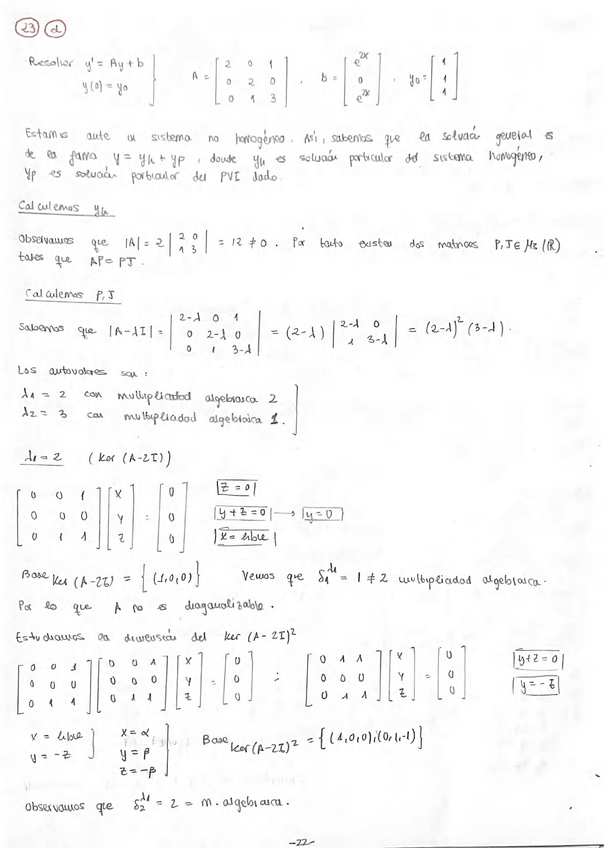 23 d
Resolver y' = Ay + b
y(0) = y0
A = [ 2 0 1
0 2 0
0 1 3 ] , b = [ e^2x
0
e^2x ] , y0 = [ 1
1
1 ]
Estamos ante un sistema no homogéneo. Así, sabemos que la solución general es
de la forma y = yh + yp , donde yh es solución particular del sistema homogéneo,
yp es solución particular del PVI dado.
Calculemos yh
Observamos que |A| = 2 | 2 0 / 1 3 | = 12 ≠ 0 . Por tanto existen dos matrices P, J ∈ M3 (R)
tales que AP = PJ .
Calculemos P, J
Sabemos que |A-λI| = | 2-λ 0 1 / 0 2-λ 0 / 0 1 3-λ | = (2-λ) | 2-λ 0 / 1 3-λ | = (2-λ)^2 (3-λ) .
Los autovalores son :
λ1 = 2 con multiplicidad algebraica 2
λ2 = 3 con multiplicidad algebraica 1.
λ1 = 2 ( Ker (A-2I) )
[ 0 0 1 / 0 0 0 / 0 1 1 ] [ x / y / z ] = [ 0 / 0 / 0 ]
z = 0
y + z = 0 → y = 0
x = libre
Base Ker (A-2I) = { (1,0,0) } Vemos que δ1^λ1 = 1 ≠ 2 multiplicidad algebraica.
Por lo que A no es diagonalizable .
Estudiamos la dimensión del Ker (A-2I)^2
[ 0 0 1 / 0 0 0 / 0 1 1 ] [ 0 0 1 / 0 0 0 / 0 1 1 ] [ x / y / z ] = [ 0 / 0 / 0 ] ; [ 0 1 1 / 0 0 0 / 0 1 1 ] [ x / y / z ] = [ 0 / 0 / 0 ]
y+z = 0
y = -z
x = libre
y = -z
x = α
y = β
z = -β
Base Ker (A-2I)^2 = { (1,0,0), (0,1,-1) }
Observamos que δ2^λ1 = 2 = m. algebraica.
-22-